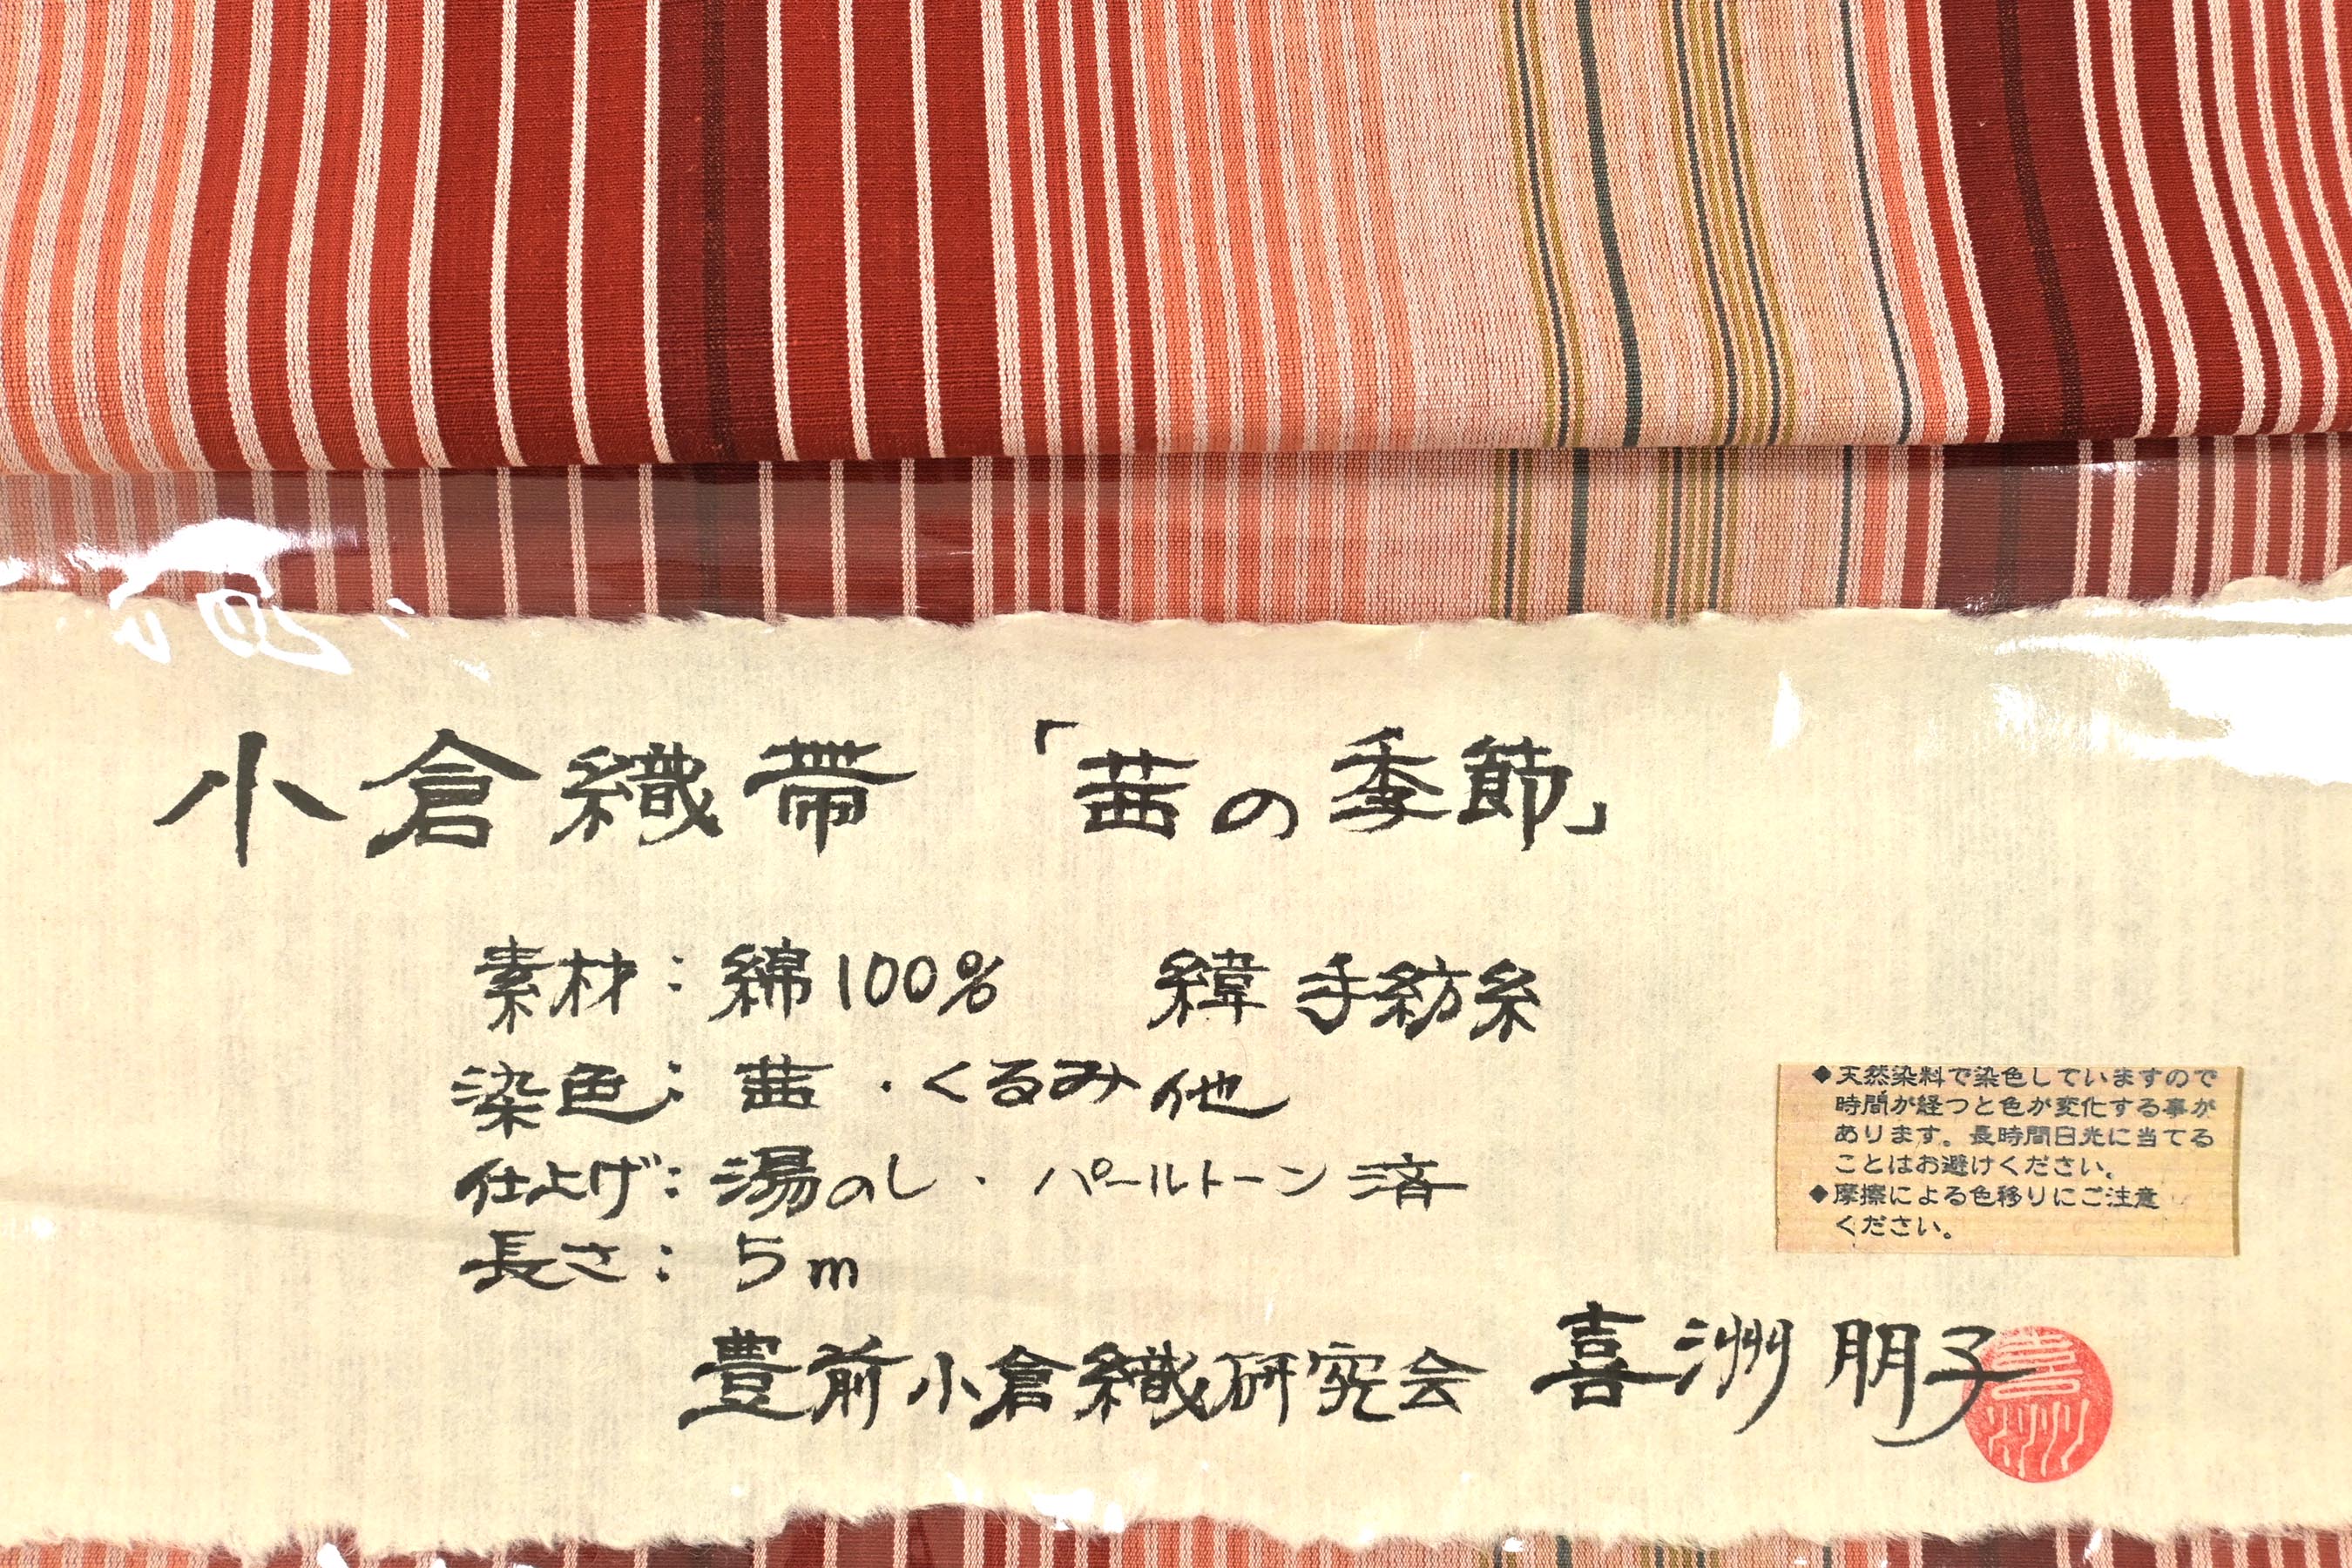 小倉織帯 「茜の季節」
素材：綿100% 緯 手紡糸
染色：茜・くるみ 他
仕上げ：湯のし・パールトーン 済
長さ：5m
◆天然染料で染色していますので
時間が経つと色が変化する事が
あります。長時間日光に当てる
ことはお避けください。
◆摩擦による色移りにご注意
ください。
豊前小倉織研究会 喜洲 朋子
喜洲